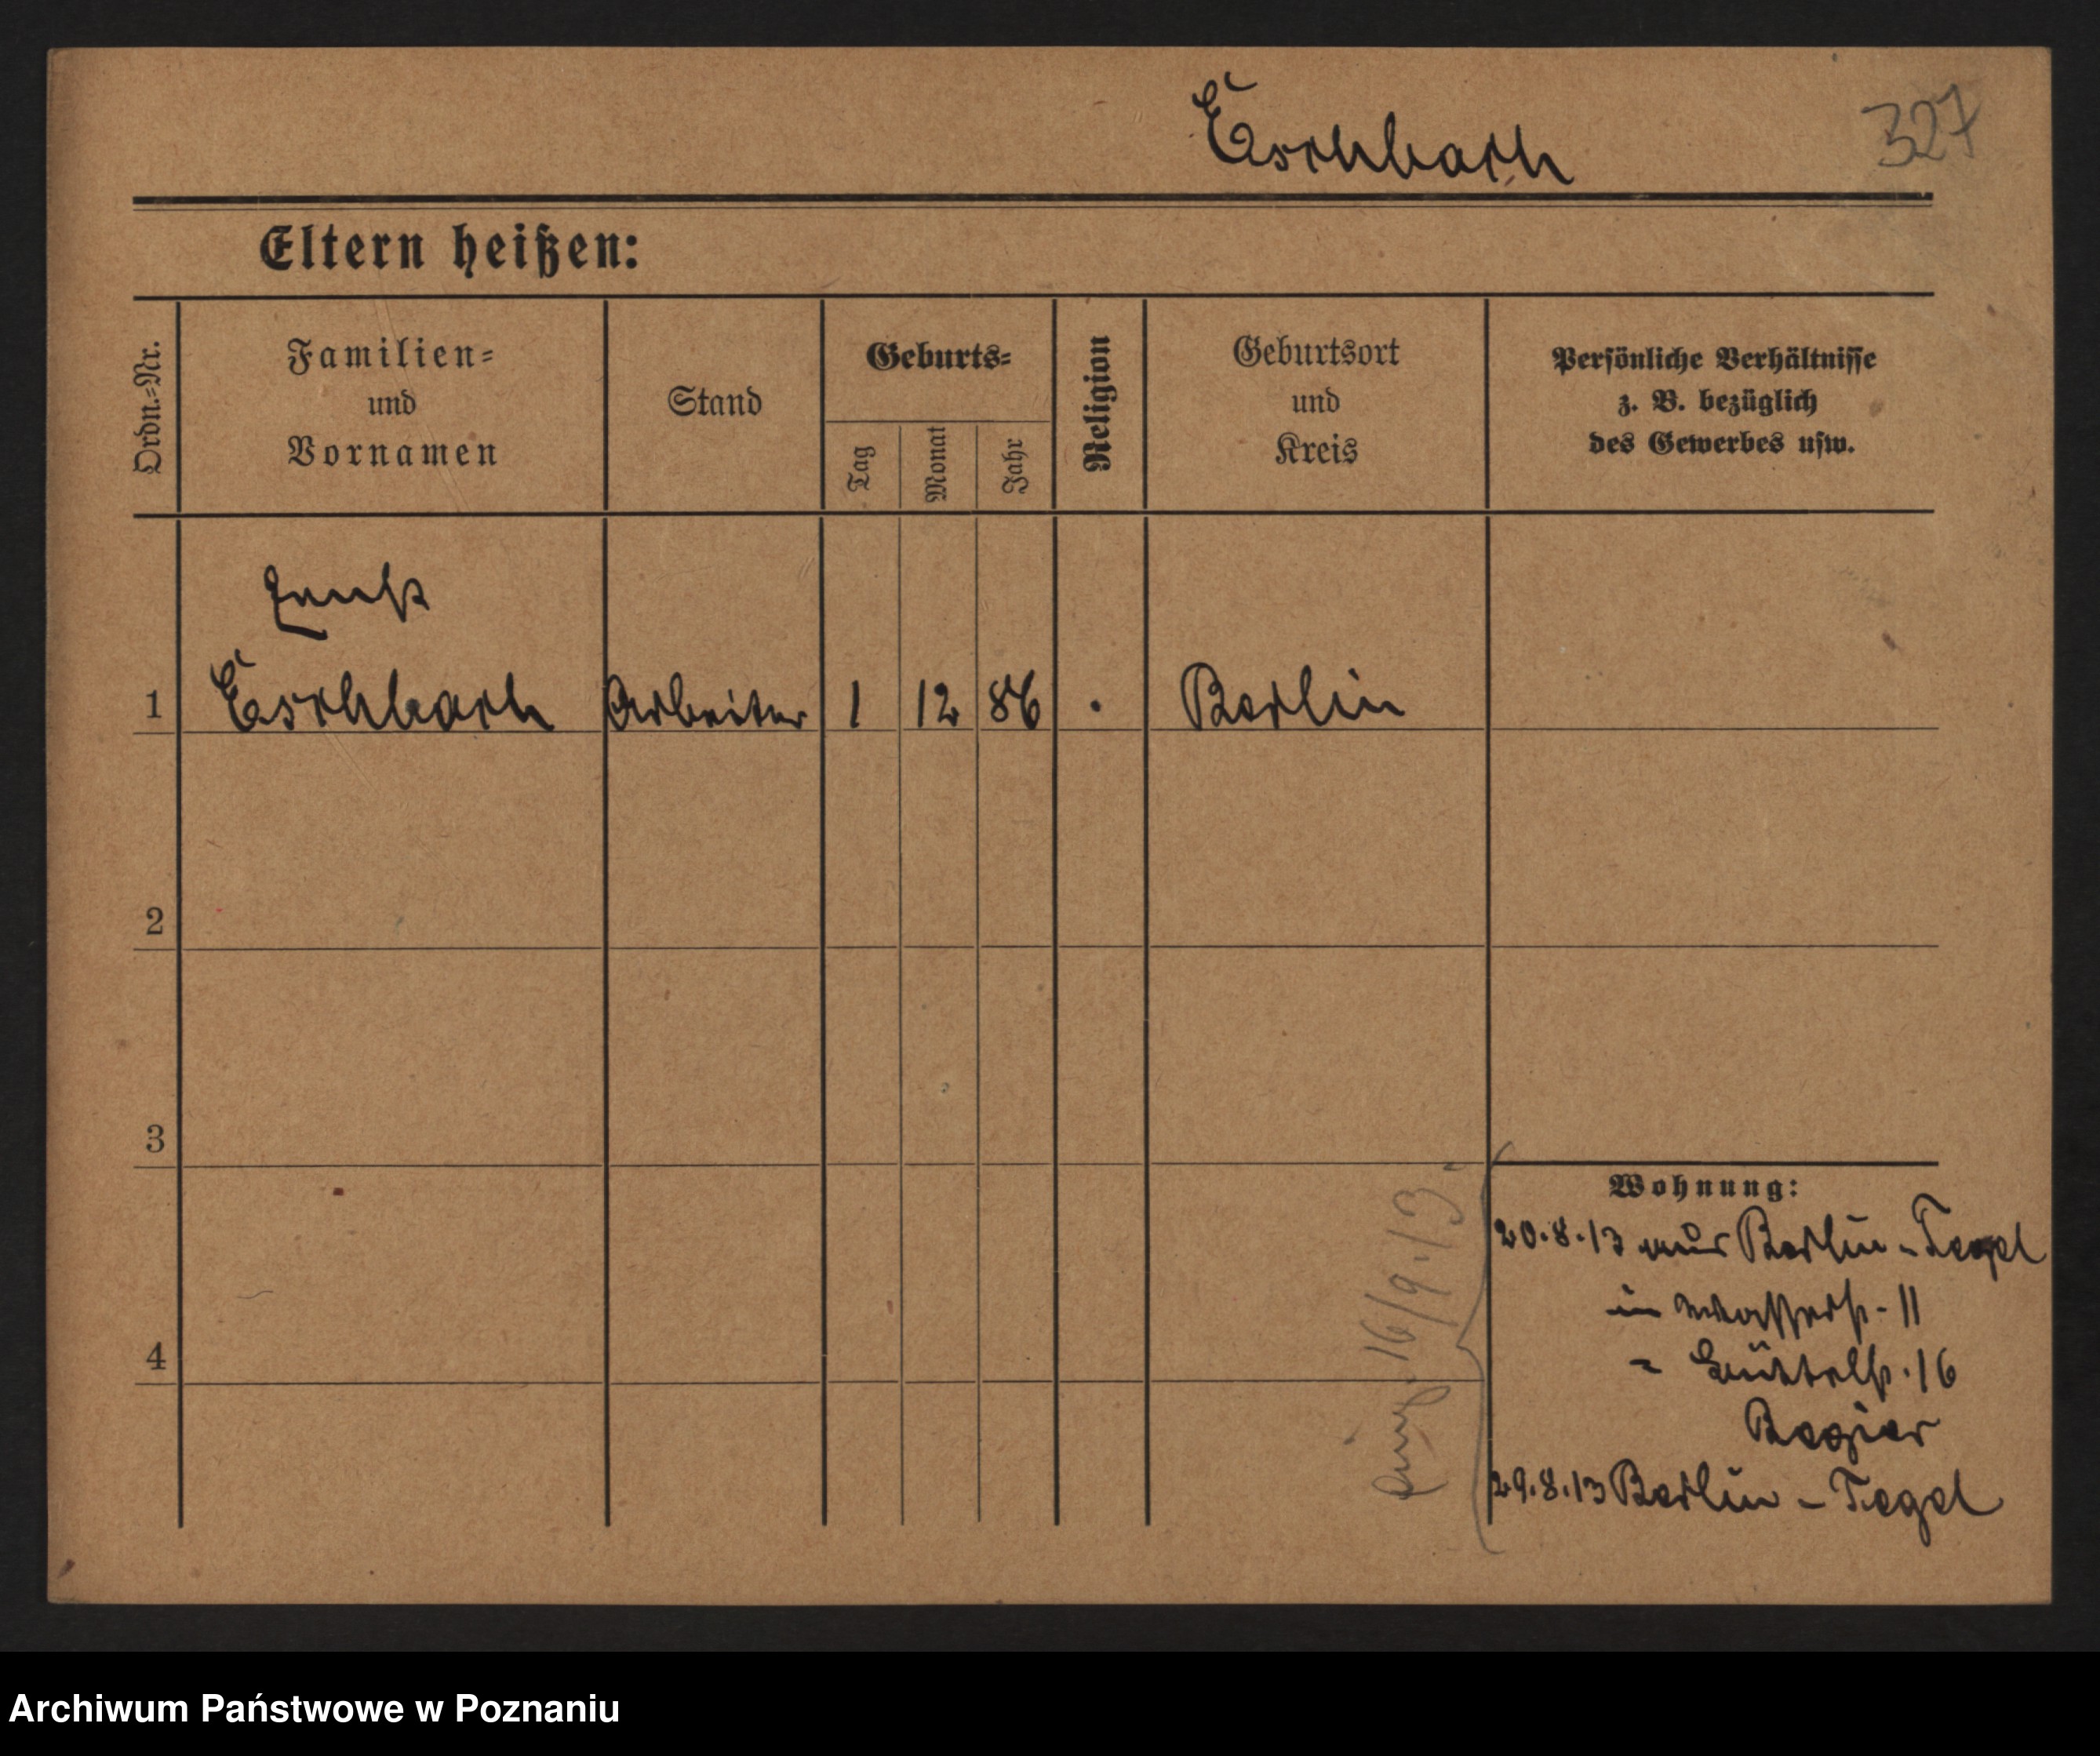 Eschbach
327
Eltern heißen:
Ordn.=Nr.
Familien=
und
Vornamen
Stand
Geburts=
Tag
Monat
Jahr
Religion
Geburtsort
und
Kreis
Persönliche Verhältnisse
z. B. bezüglich
des Gewerbes usw.
Ernst
1 Eschbach Arbeiter 1 12 86 Berlin
2
3
4
Wohnung:
20.8.13 aus Berlin-Tegel
in Wasserstr. 11
= 16
29.8.13 Berlin - Tegel
16/9.13.
Archiwum Państwowe w Poznaniu